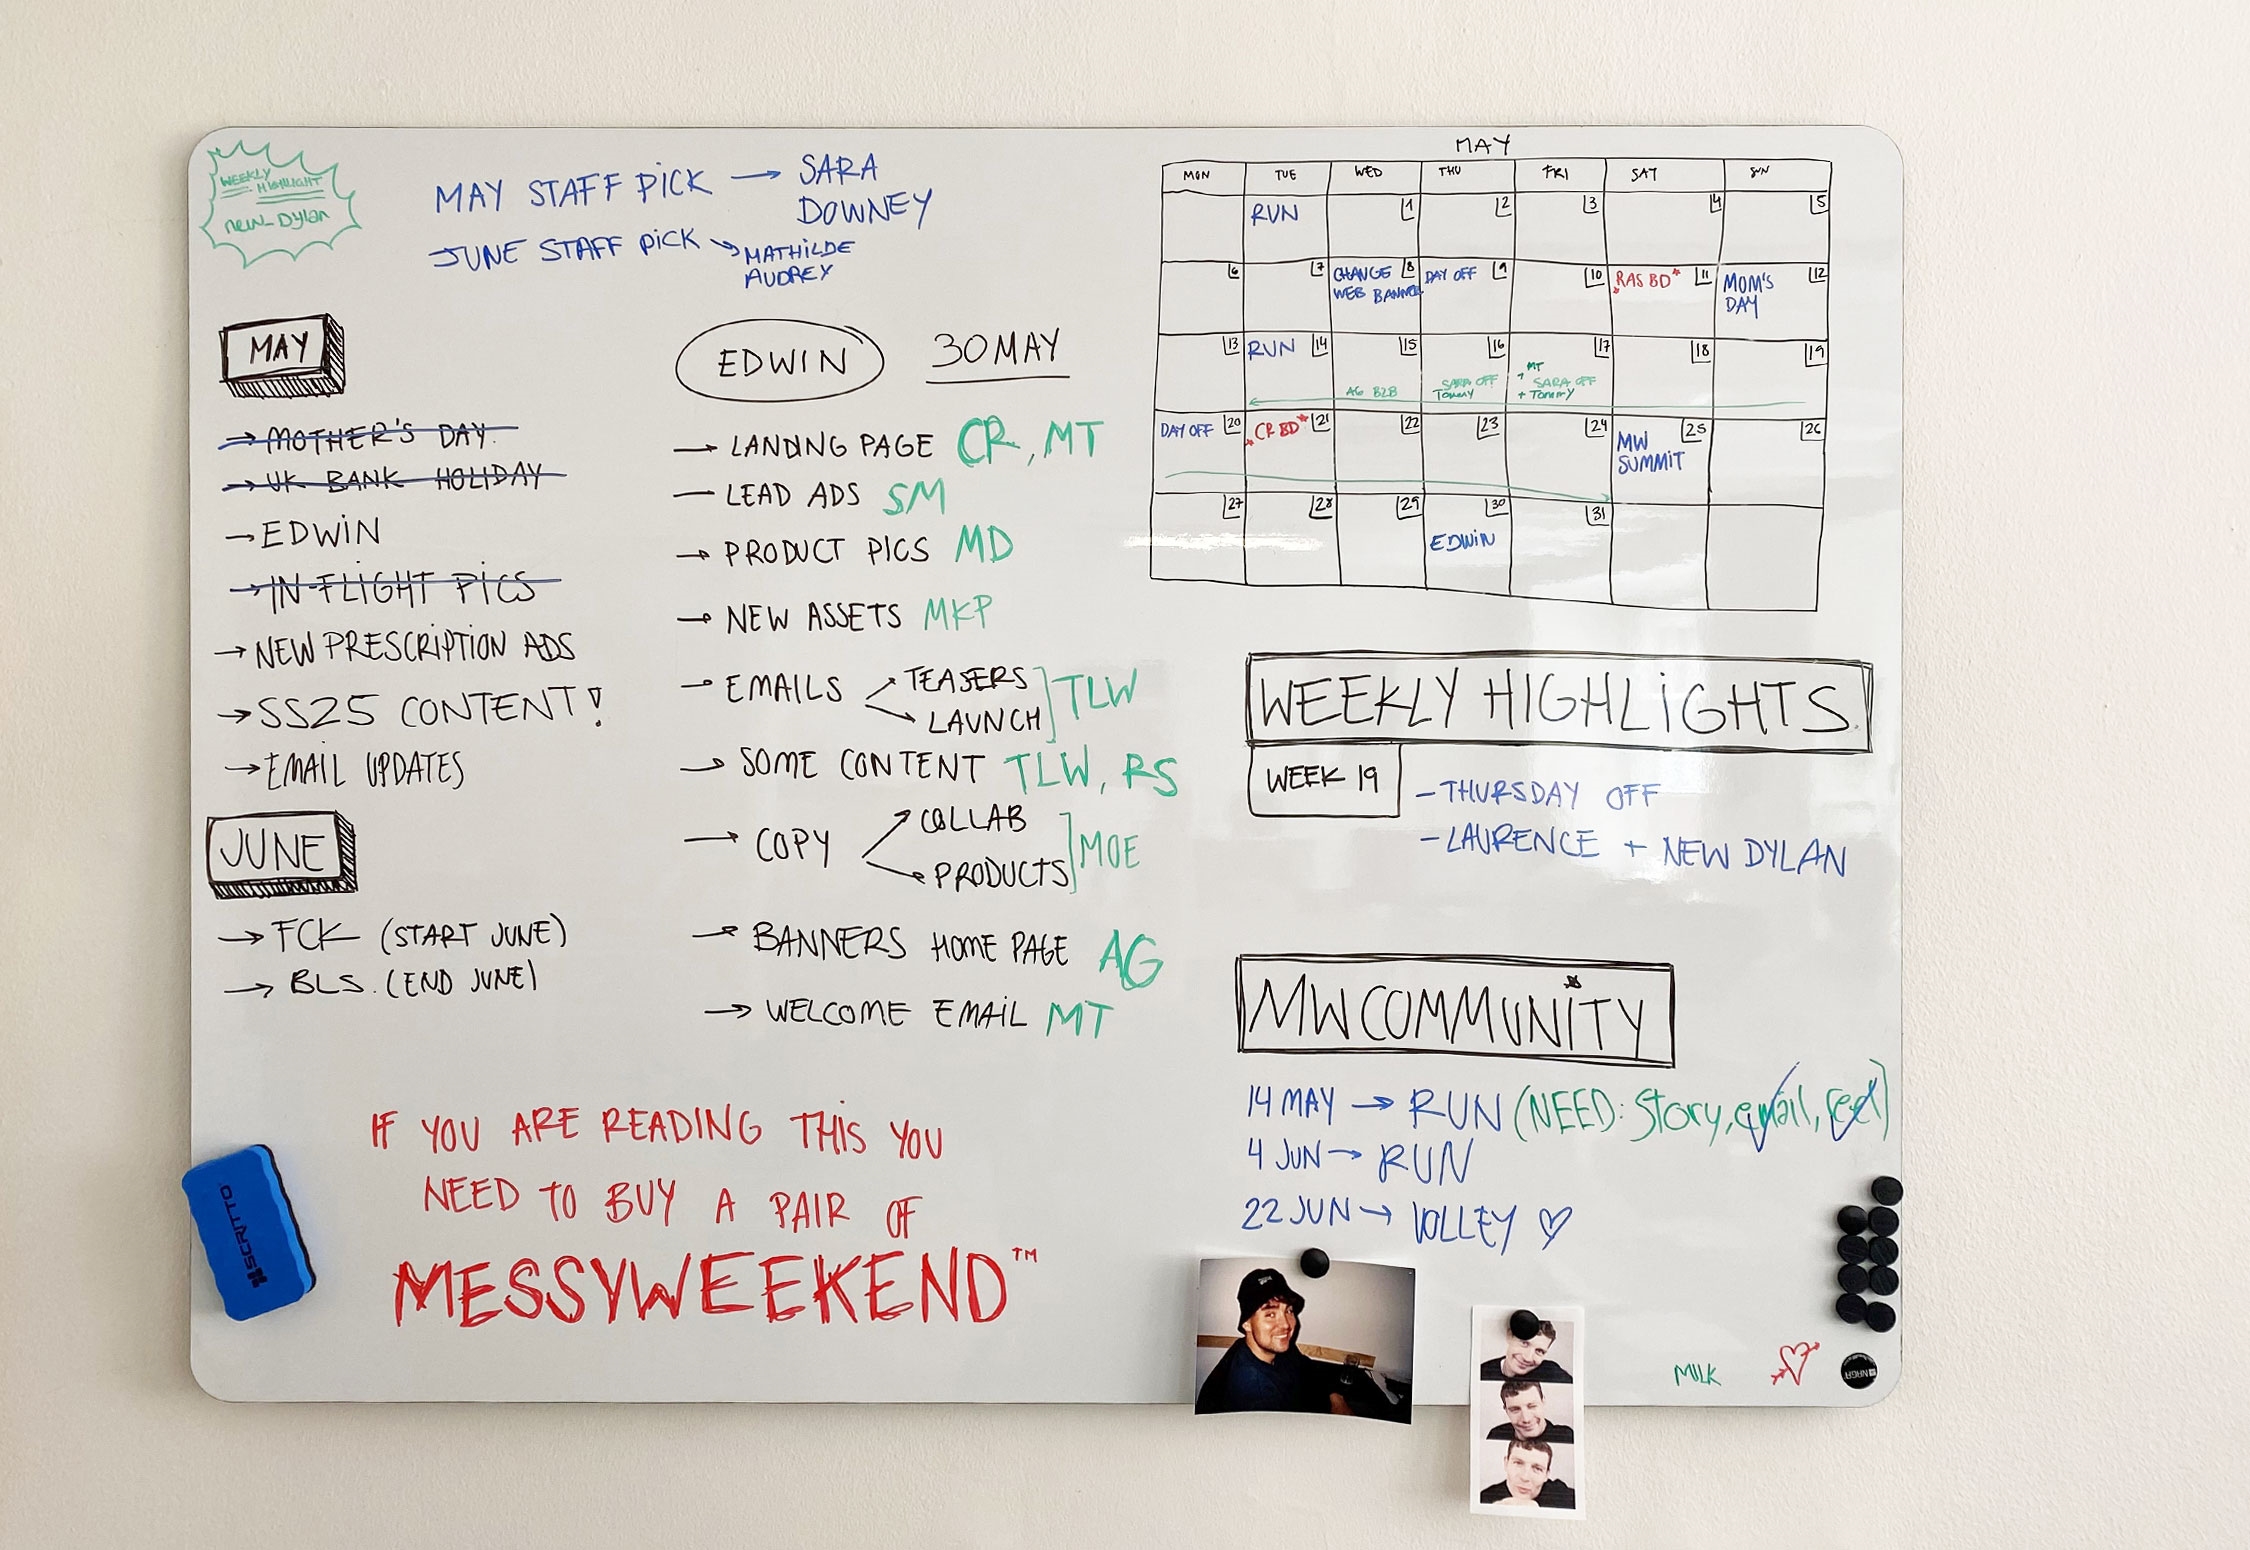 WEEKLY
HIGHLIGHT
new_Dylan
MAY STAFF PICK → SARA
DOWNEY
JUNE STAFF PICK → MATHILDE
AUDREY
MAY
→ MOTHER'S DAY
→ UK BANK HOLIDAY
→ EDWIN
→ IN-FLIGHT PICS
→ NEW PRESCRIPTION ADS
→ SS25 CONTENT!
→ EMAIL UPDATES
JUNE
→ FCK (START JUNE)
→ BLS. (END JUNE)
EDWIN 30 MAY
→ LANDING PAGE CR, MT
— LEAD ADS SM
→ PRODUCT PICS MD
→ NEW ASSETS MKP
→ EMAILS → TEASERS
→ LAUNCH TLW
→ SOME CONTENT TLW, RS
→ COPY → COLLAB
→ PRODUCTS MOE
→ BANNERS HOME PAGE AG
→ WELCOME EMAIL MT
IF YOU ARE READING THIS YOU
NEED TO BUY A PAIR OF
MESSYWEEKEND™
SCRITTO
MAY
MON TUE WED THU FRI SAT SUN
RUN 1 2 3 4 5
6 7 CHANGE 8 DAY OFF 9 10 *RAS BD* 11 MOM'S 12
WEB BANNER DAY
13 RUN 14 15 16 17 18 19
MT
AG B2B SARA OFF + SARA OFF
Tommy + Tommy
DAY OFF 20 *CR BD* 21 22 23 24 MW 25 26
SUMMIT
27 28 29 30 31
EDWIN
WEEKLY HIGHLIGHTS.
WEEK 19
– THURSDAY OFF
– LAURENCE + NEW DYLAN
MW COMMUNITY
14 MAY → RUN (NEED: Story, email, reel)
4 JUN → RUN
22 JUN → VOLLEY ♡
MILK
NAGA